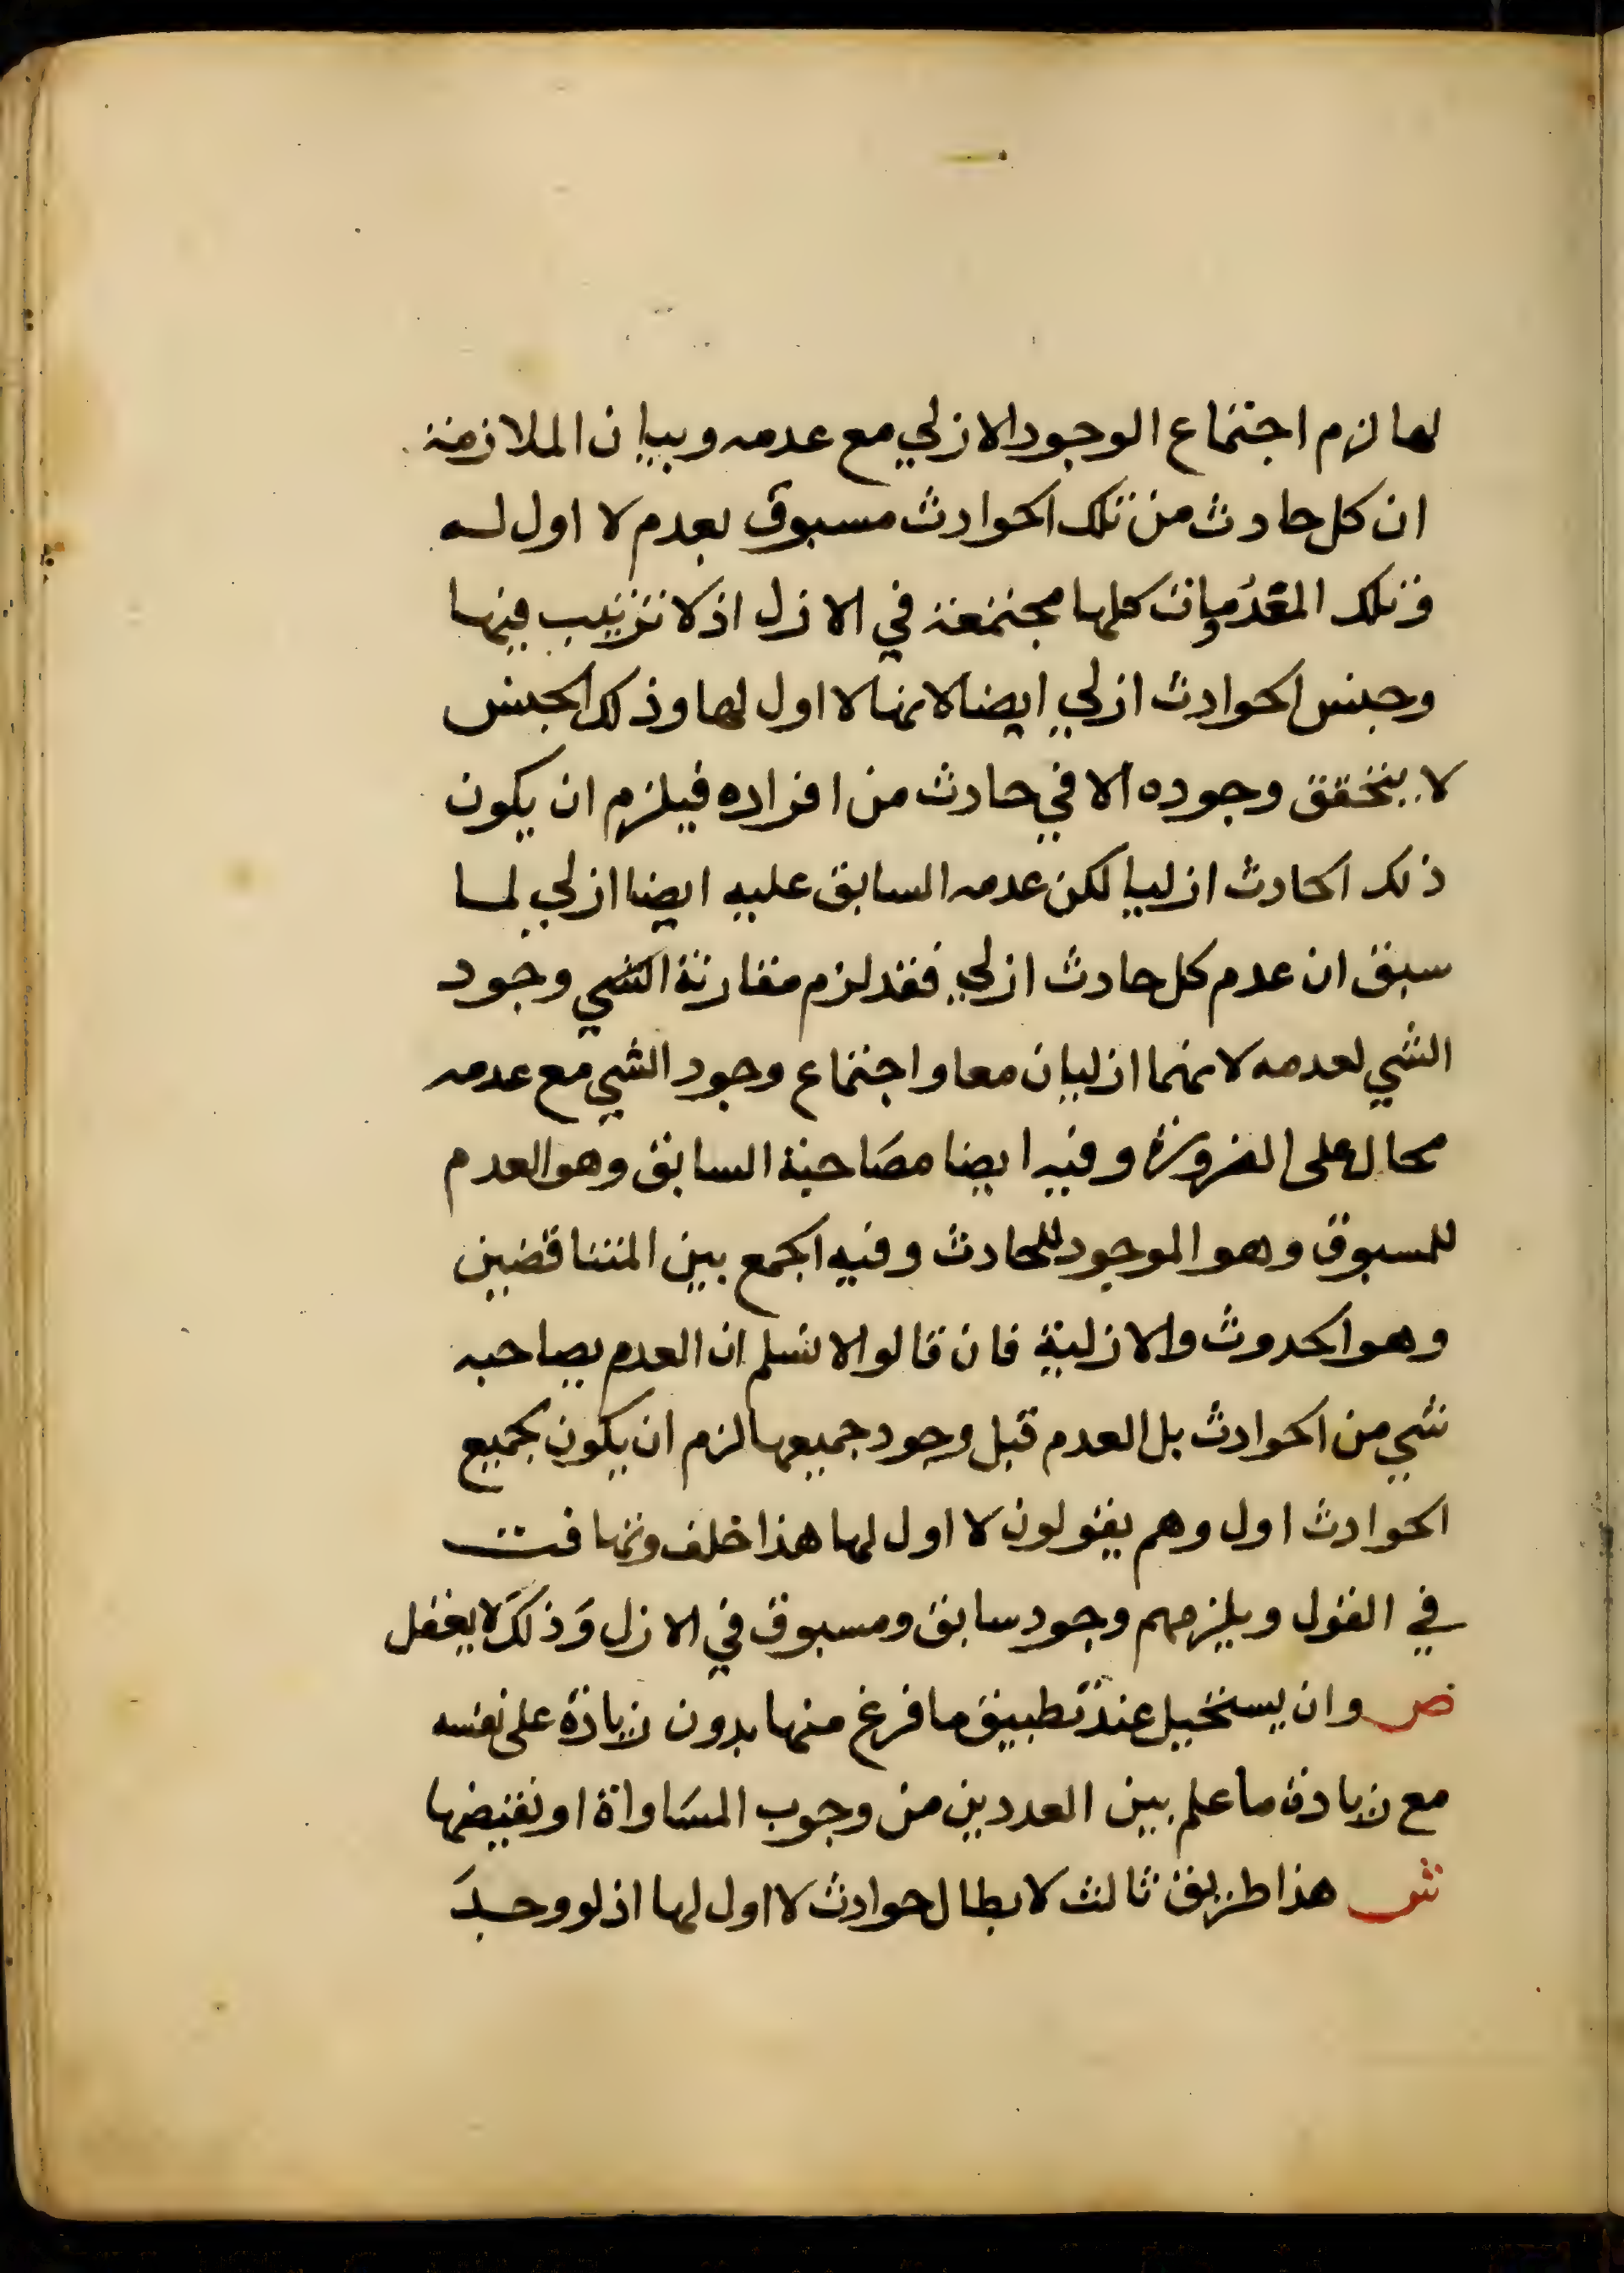 لها لزم اجتماع الوجود الازلي مع عدمه وبيان الملازمة
ان كل حادث من تلك الحوادث مسبوق بعدم لا اول له
فتلك العدميات كلها مجتمعة في الازل اذ لا ترتيب فيها
وجنس الحوادث ازلي ايضا لانها لا اول لها وذلك الجنس
لا يتحقق وجوده الا في حادث من افراده فيلزم ان يكون
ذلك الحادث ازليا لكن عدمه السابق عليه ايضا ازلي لما
سبق ان عدم كل حادث ازلي فقد لزم مقارنة الشي وجود
الشي لعدمه لانهما ازليان معا واجتماع وجود الشي مع عدمه
محال على الضرورة وفيه ايضا مصاحبة السابق وهو العدم
للمسبوق وهو الموجود للحادث وفيه الجمع بين المتناقضين
وهو الحدوث والازلية فان قالوا لا نسلم ان العدم يصاحبه
شي من الحوادث بل العدم قبل وجود جميعها لزم ان يكون لجميع
الحوادث اول وهم يقولون لا اول لها هذا خلف وتهافت
في القول ويلزمهم وجود سابق ومسبوق في الازل وَذلكَ لا يعقل
ص وان يستحيل عند تطبيق ما فرغ منها بدون زيادة على نفسه
مع زيادة ما علم بين العددين من وجوب المسَاواة او نقيضها
ش هذا طريق ثالث لابطال حوادث لا اول لها اذ لو وجدَ